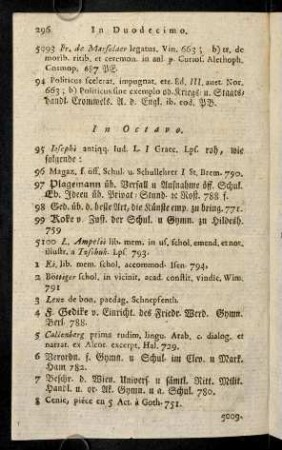 296 In Duodecimo.
5093 Fr. de Marselaer legatus. Vin. 663; b) tr. de
morib. ritib. et ceremon. in aul. p. Curios. Alethoph.
Cosmop. 687 PS.
94 Politicus scelerat. impugnat. etc. Ed. III. auct. Nor.
663; b) Politicus sine exemplo od. Kriegs- u. Staats-
handl. Crommels. A. d. Engl. ib. eod. PB.
In Octavo.
95 Iosephi antiqq. Iud. L. I Graec. Lps. roh, wie
folgende:
96 Magaz. f. öff. Schul. u. Schullehrer I St. Brem. 790.
97 Plagemann üb. Verfall u. Aufnahme öff. Schul.
Eb. Ideen üb. Privat- Stand- ec Rost. 788 f.
98 Ged. üb. d. beste Art, die Künste emp. zu bring. 771.
99 Koke v. Zust. der Schul. u Gymn. zu Hildesh.
759
5100 L. Ampelii lib. mem. in us. schol. emend. et not.
illustr. a Tzschuk. Lps. 793.
1 Ei. lib. mem. schol. accommod. Isen. 794.
2 Böttiger schol. in vicinit. acad. constit. vindic. Wim.
791
3 Lenz de bon. paedag. Schnepfenth.
4 F. Gedike v. Einricht. des Friedr. Werd. Gymn.
Berl. 788.
5 Callenberg prima rudim. lingu. Arab. c. dialog. et
narrat. ex Alcor. excerpt. Hal. 729.
6 Verordn. f. Gymn. u Schul. im Clev. u Mark.
Ham 782.
7 Beschr. d. Wien. Univers. u sämtl. Ritt. Milit.
Handl. u. or. Ak. Gymn. u a. Schul. 780.
8 Cenie, piéce en 5 Act. à Goth. 751.
5009.